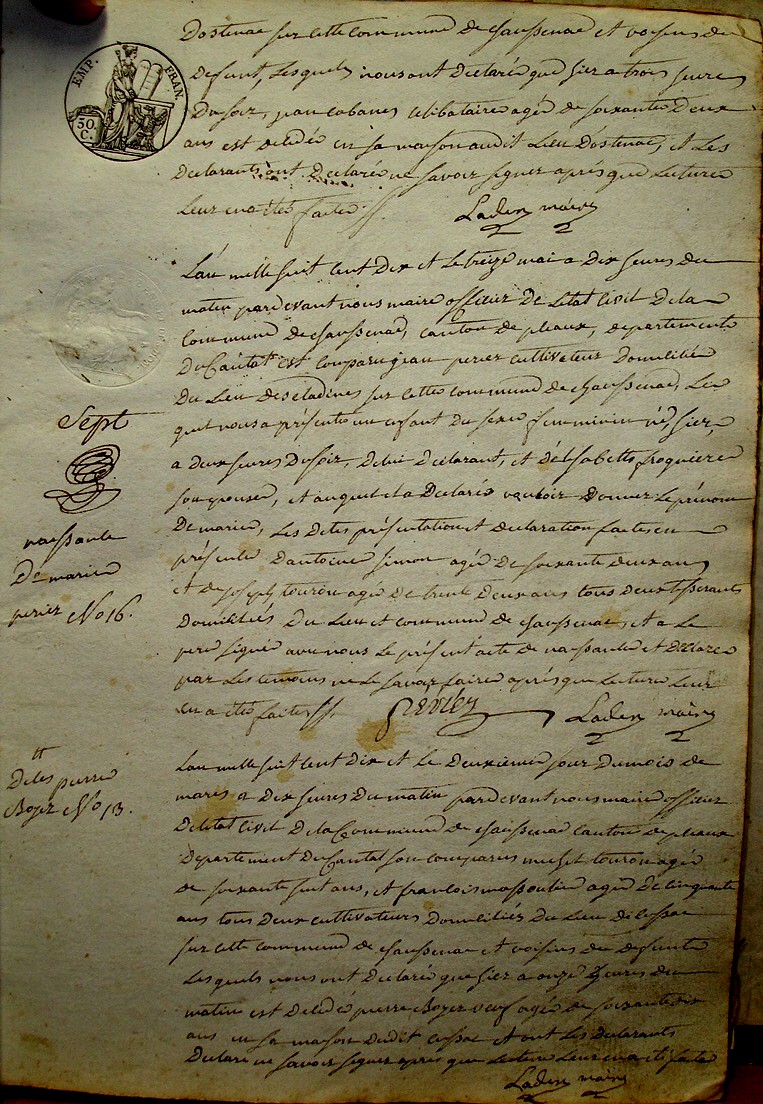 EMP. FRAN.
50 C.
Dostenac sur cette commune de chaussenac et voisins du
defunt, Lesquels nous ont declarée que hier a trois heures
Du soir, jean cabanes celibataire agée de soixante Deux
ans est decedée en sa maison audit Lieu Dostenac, et Les
declarants ont declarée ne savoir signer après que Lecture
Leur en a été faite //.
Laden maire
L'an mille huit cent Dix et le treize mai a Dix heures du
matin pardevant nous maire officier De L'etat Civil De la
Commune de chaussenac, canton de pleaux, departement
Du Cantal est comparu jean perier cultivateur Domicilié
Du Lieu descladines sur cette commune de chaussenac, Le
quel nous a présenté un enfant du sexe feminin né, hier,
a deux heures Du soir, De lui declarant, et d'élisabette froquiere
son epouse, et auquel il a Declarée vouloir Donner Le prénom
De marie, Les Dites présentation et declaration faites en
présence D'antoine simon agée De soixante deux ans
et de joseph touron agée De trente Deux ans tous deux tisserants
Domiciliés Du Lieu et commune de chaussenac, et a Le
pere signée avec nous Le présent acte de naissance et Declaree
par Les temoins ne Le savoir faire après que Lecture Leur
en a été faite //.
PERIER
Laden maire
Sept
naissance
De marie
perier No 16.
L'an mille huit cent Dix et Le Deuxieme jour Du mois de
mars a Dix heures Du matin pardevant nous maire officier
De L'etat Civil De la Commune de chaussenac canton de pleaux
departement du Cantal sont comparus michel touron agée
de soixante huit ans, et francois massoulie agée De cinquante
ans tous Deux cultivateurs Domiciliés Du Lieu de cussac
sur cette commune de chaussenac et voisins du defunt
Lesquels nous ont Declarée que hier a onze heures du
matin est decedé pierre Boyer veuf agée de soixante dix
ans en sa maison Dudit cussac et ont Les Declarants
Declaré ne savoir signer après que Lecture Leur en a été faite
Laden maire
Deces pierre
Boyer No 13.